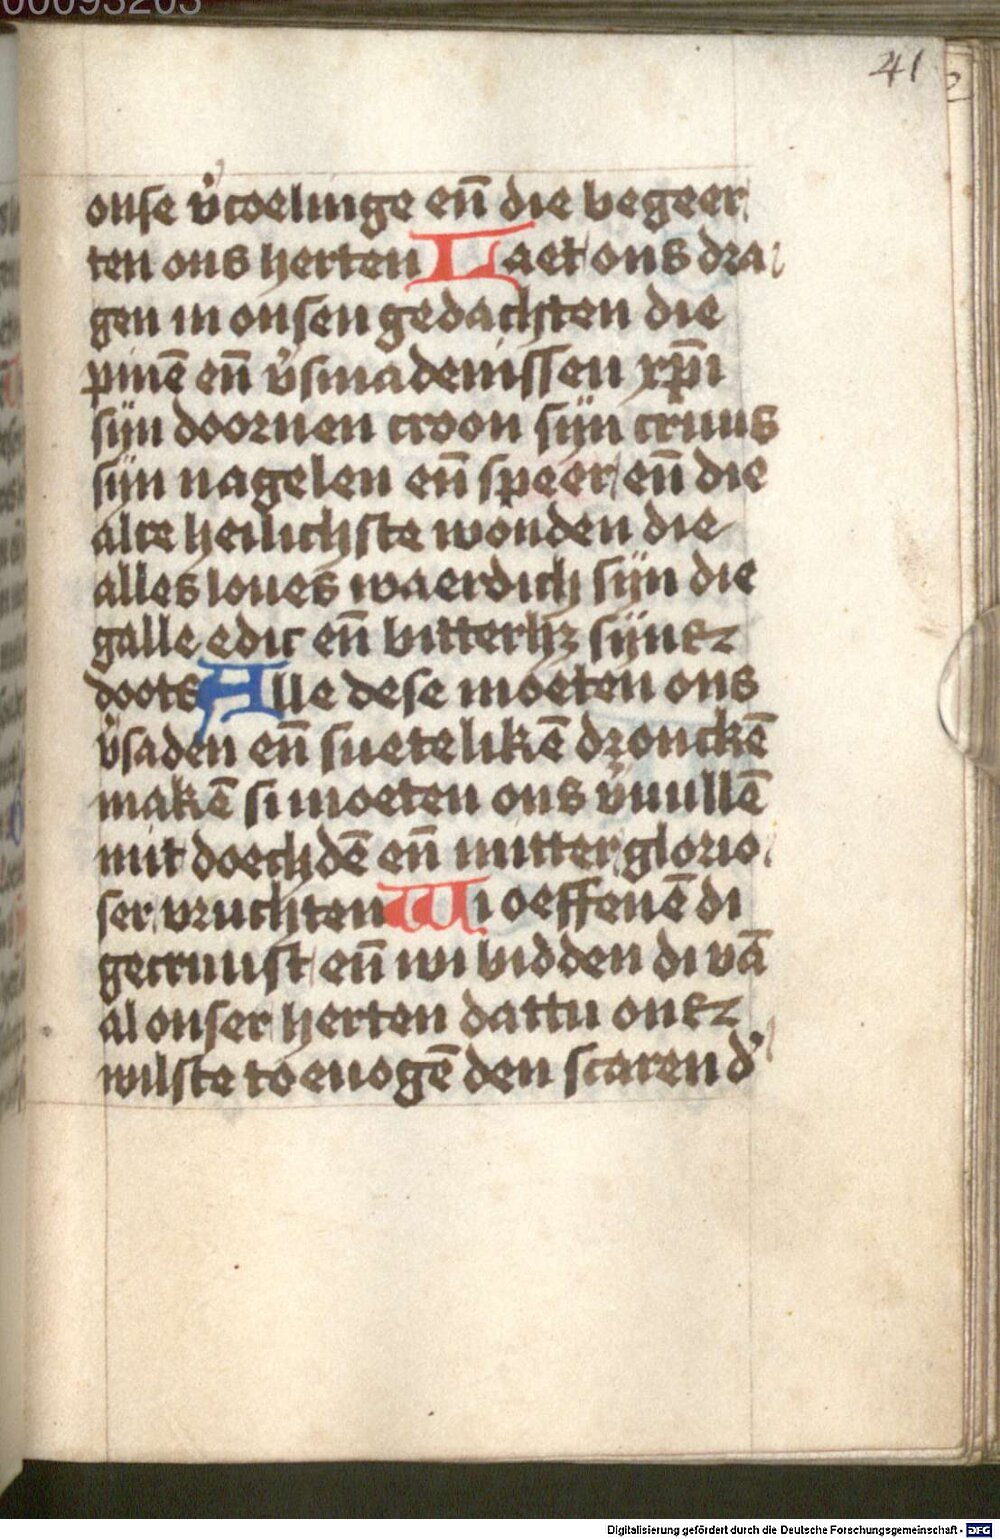 00093203
41
onse v̉coelinge en̄ die begeer
ten ons herten Laet ons dra
gen in onsen gedachten die
pinē en̄ v̉smadenissen xp̄i
sijn doornen croon sijn cruus
sijn nagelen en̄ speer en̄ die
alre heilichste wonden die
alles loues waerdich sijn die
galle edic en̄ bitterhꝫ sijnꝫ
doots Alle dese moeten ons
v̉saden en̄ suetelikē dronckē
makē si moeten ons v̉uullē
mit doechdē en̄ mitter glorio
ser vruchten Wi oeffenē di
gecruust en̄ wi bidden di vā
al onser herten dattu ons
wilste toeuogē den scaren d̉
Digitalisierung gefördert durch die Deutsche Forschungsgemeinschaft - DFG